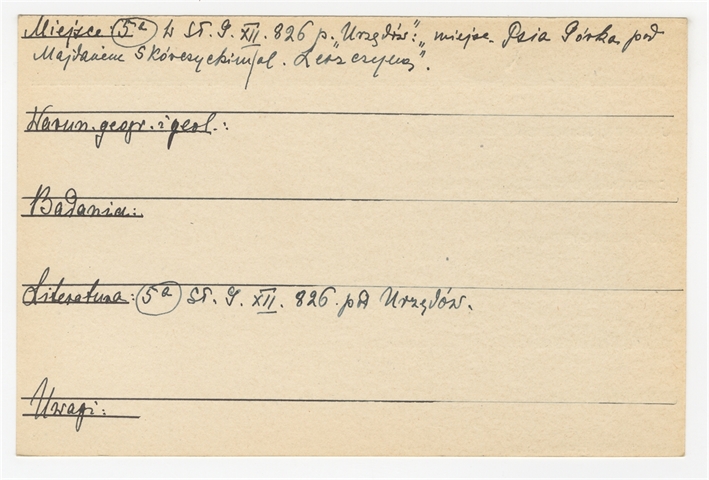 Miejsce: 5a W Sł. G. XII. 826 p. Urzędów: „miejsc. Psia Górka pod
Majdanem Skórczyckim/ol. Leszczyną".
Warun. geogr. i geol.:
Badania:
Literatura: 5a Sł. G. XII. 826. pod Urzędów.
Uwagi: